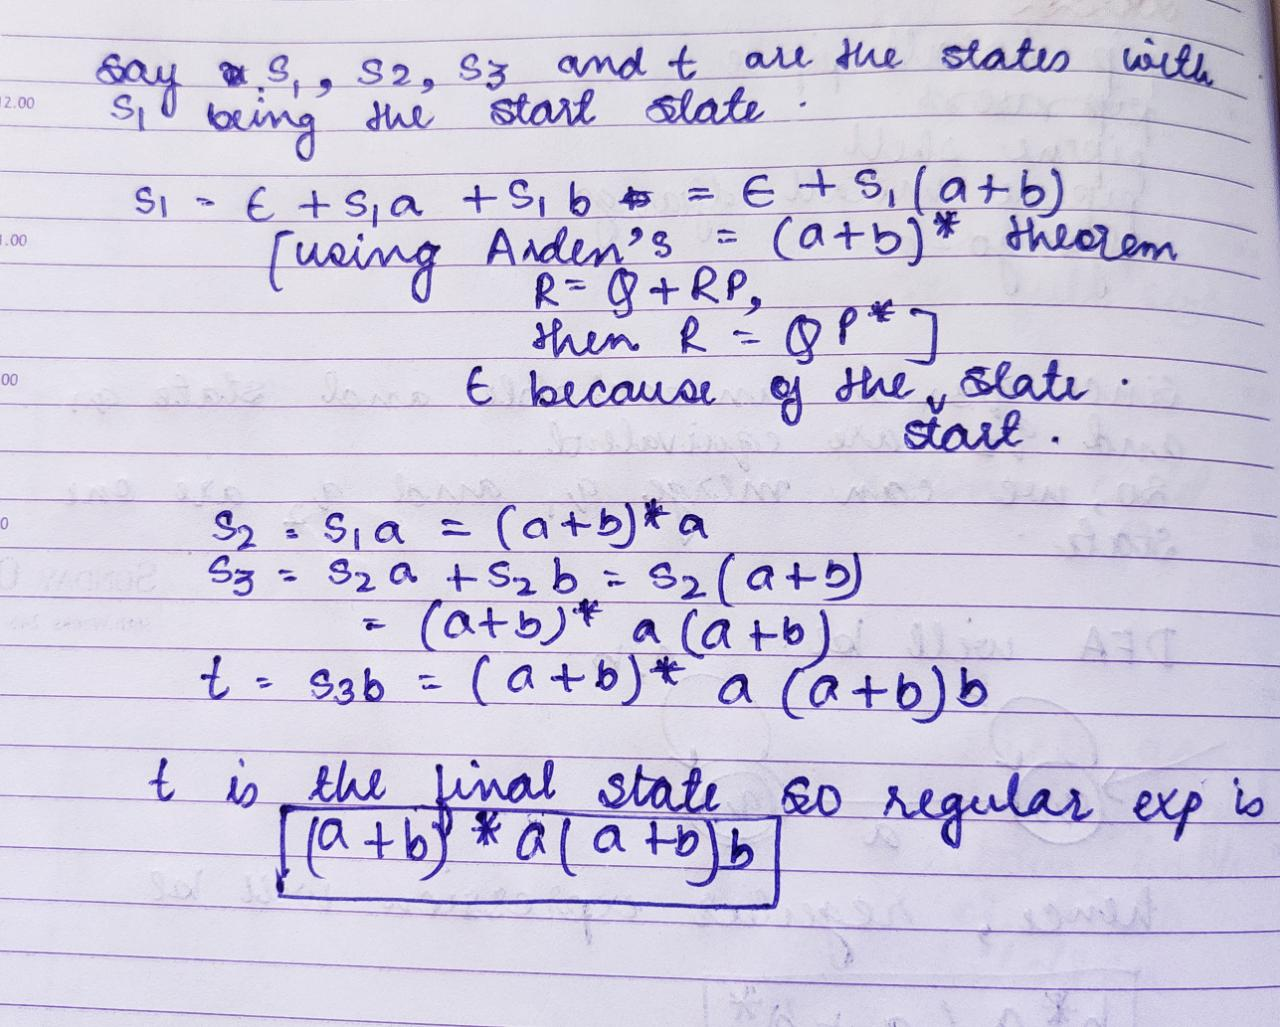 say S1, S2, S3 and t are the states with
S1 being the start state .
S1 = ε + S1a + S1b = ε + S1(a+b)
[using Arden's = (a+b)* theorem
R = Q + RP,
then R = QP*]
ε because of the start state .
S2 = S1a = (a+b)*a
S3 = S2a + S2b = S2(a+b)
= (a+b)* a(a+b)
t = S3b = (a+b)* a (a+b)b
t is the final state so regular exp is
(a+b)*a(a+b)b
12.00
1.00
00
0